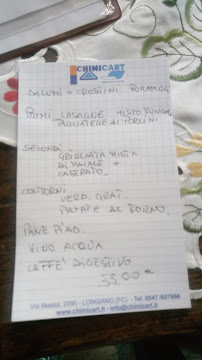 CHIMICART
SALUMI + CROSTINI FORMAGGI
PRIMI LASAGNE MISTO FUNGHI
TAGLIATELLE AI PORCINI
SECONDI
GRIGLIATA MISTA
DI MAIALE +
CASTRATO.
CONTORNI
VERD. GRAT.
PATATE AL FORNO.
PANE PIAD.
VINO ACQUA
CAFFE' DIGESTIVO
35.00
Via Massa, 2090 - LONGIANO (FC) - Tel. 0547
www.chimicart.it - info@chimicart.it